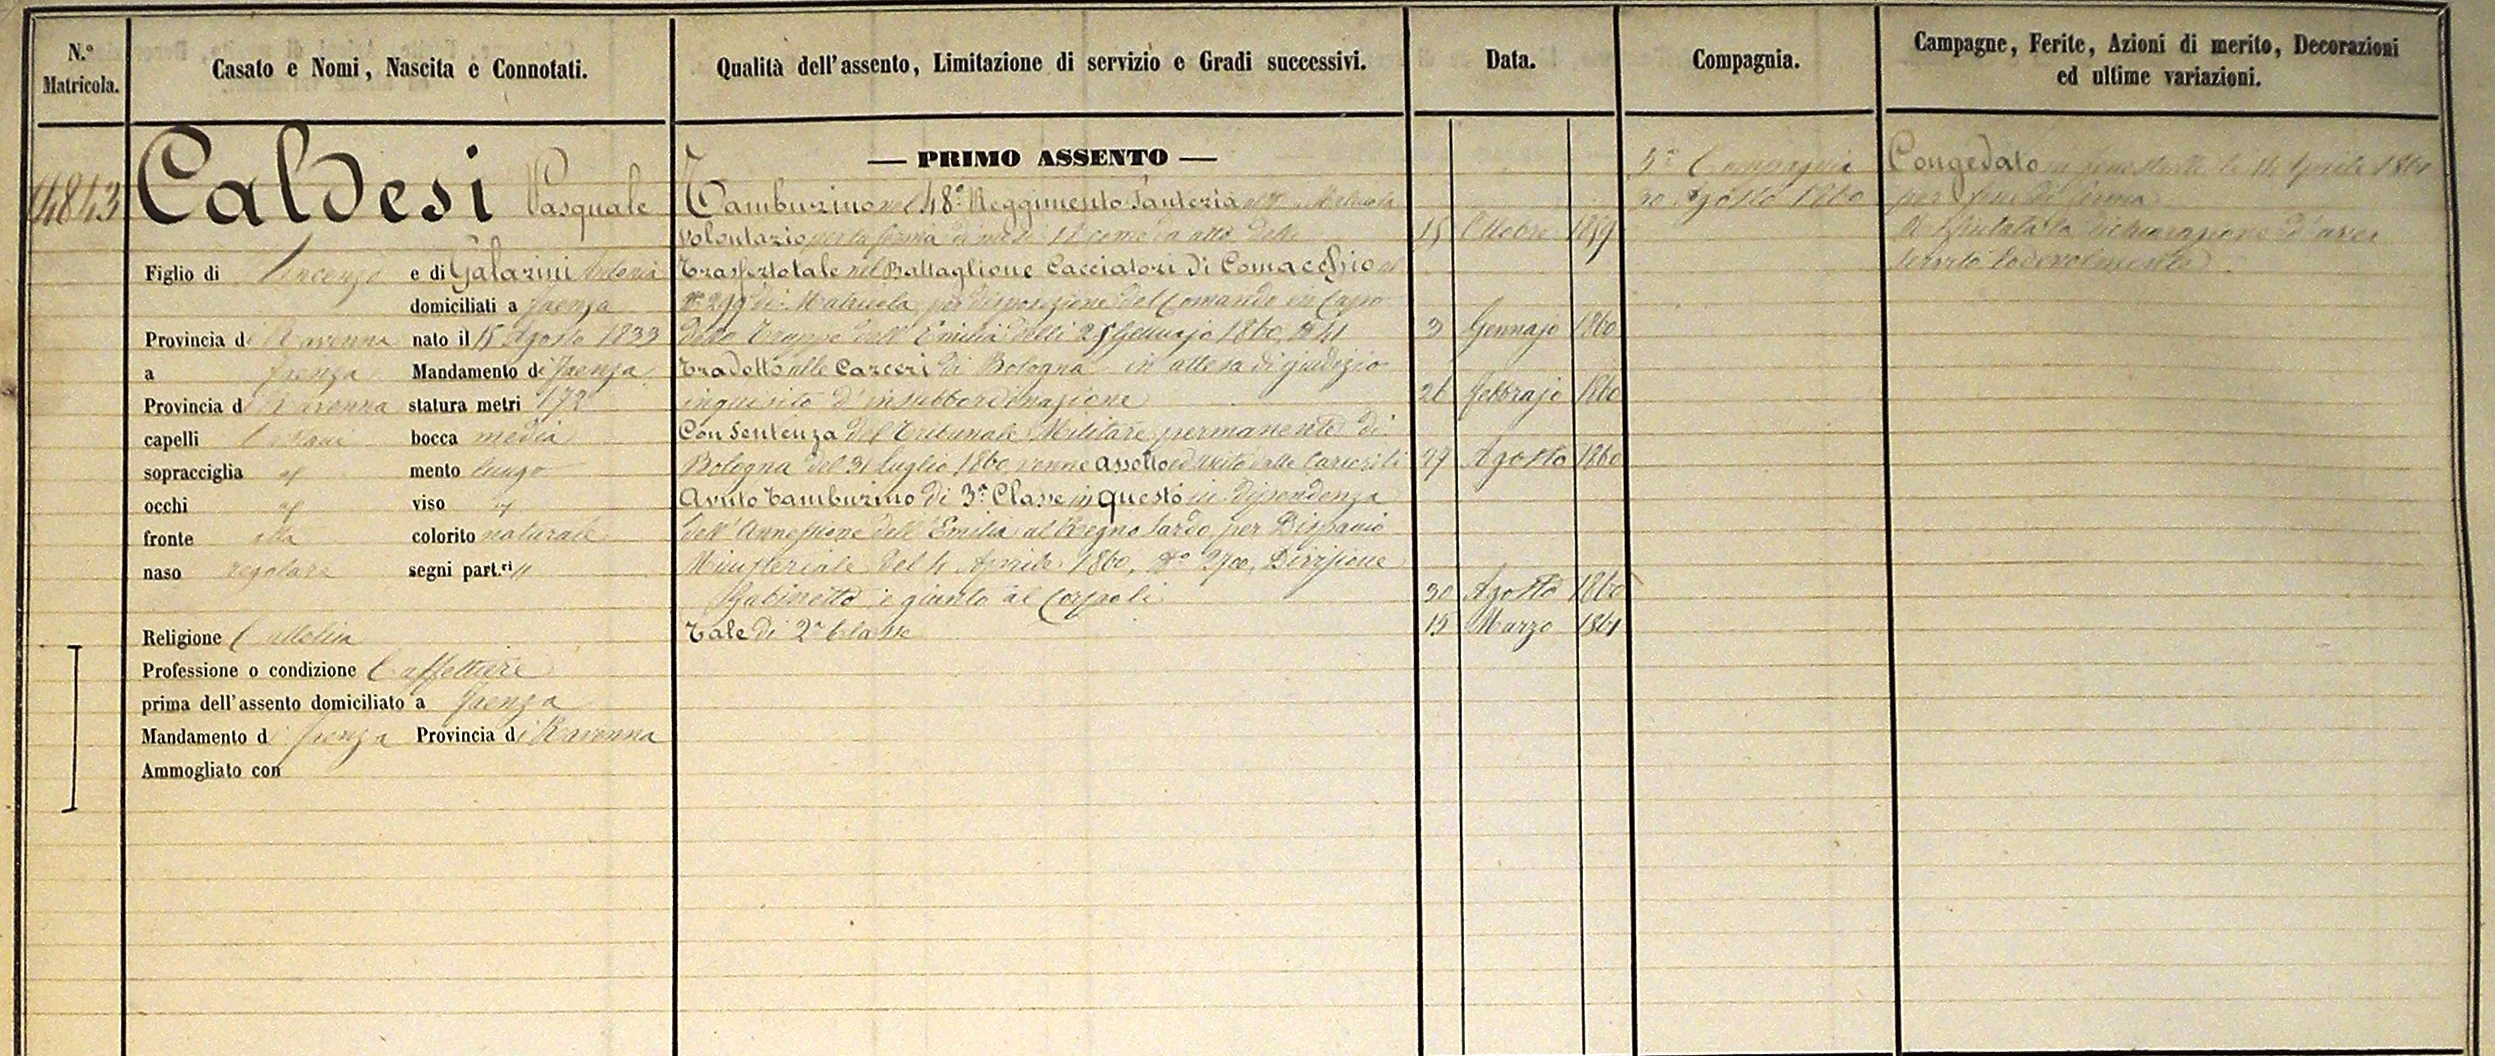 N.º Matricola.
Casato e Nomi, Nascita e Connotati.
Qualità dell'assento, Limitazione di servizio e Gradi successivi.
Data.
Compagnia.
Campagne, Ferite, Azioni di merito, Decorazioni
ed ultime variazioni.
4843
Caldesi Pasquale
Figlio di Vincenzo e di Galarini Antonia
domiciliati a Faenza
Provincia di Ravenna nato il 15 Agosto 1833
a Faenza Mandamento di Faenza
Provincia di Ravenna statura metri 172
capelli bocca media
sopracciglia mento lungo
occhi viso
fronte alta colorito naturale
naso regolare segni part.ri "
Religione Cattolica
Professione o condizione Caffettiere
prima dell'assento domiciliato a Faenza
Mandamento di Faenza Provincia di Ravenna
Ammogliato con
— PRIMO ASSENTO —
Tamburino nel 48º Reggimento Fanteria al Nº Matricola
volontario per la ferma di mesi 18 come da atto delli 15 Ottobre 1859
Trasferto tale nel Battaglione Cacciatori di Comacchio al
Nº 299 di Matricola per disposizione del Comando in Capo
delle Truppe dell'Emilia delli 25 Gennajo 1860, Nº 41 3 Gennajo 1860
Tradotto alle Carceri di Bologna in attesa di giudizio
inquisito d'insubbordinazione 26 Febbrajo 1860
Con Sentenza del Tribunale Militare permanente di
Bologna del 31 Luglio 1860 venne assolto ed uscito dalle Carceri li 29 Agosto 1860
Avuto Tamburino di 3ª Classe in questo in dipendenza
dell'Annessione dell'Emilia al Regno Sardo, per Dispaccio
Ministeriale del 4 Aprile 1860, Nº 2900, Divisione
Gabinetto e giunto al Corpo li 30 Agosto 1860
Tale di 2ª Classe 15 Marzo 1861
5ª Compagnia
30 Agosto 1860
Congedato li 14 Aprile 1861
per fine di ferma
rifiutata la dichiarazione d'aver
servito lodevolmente